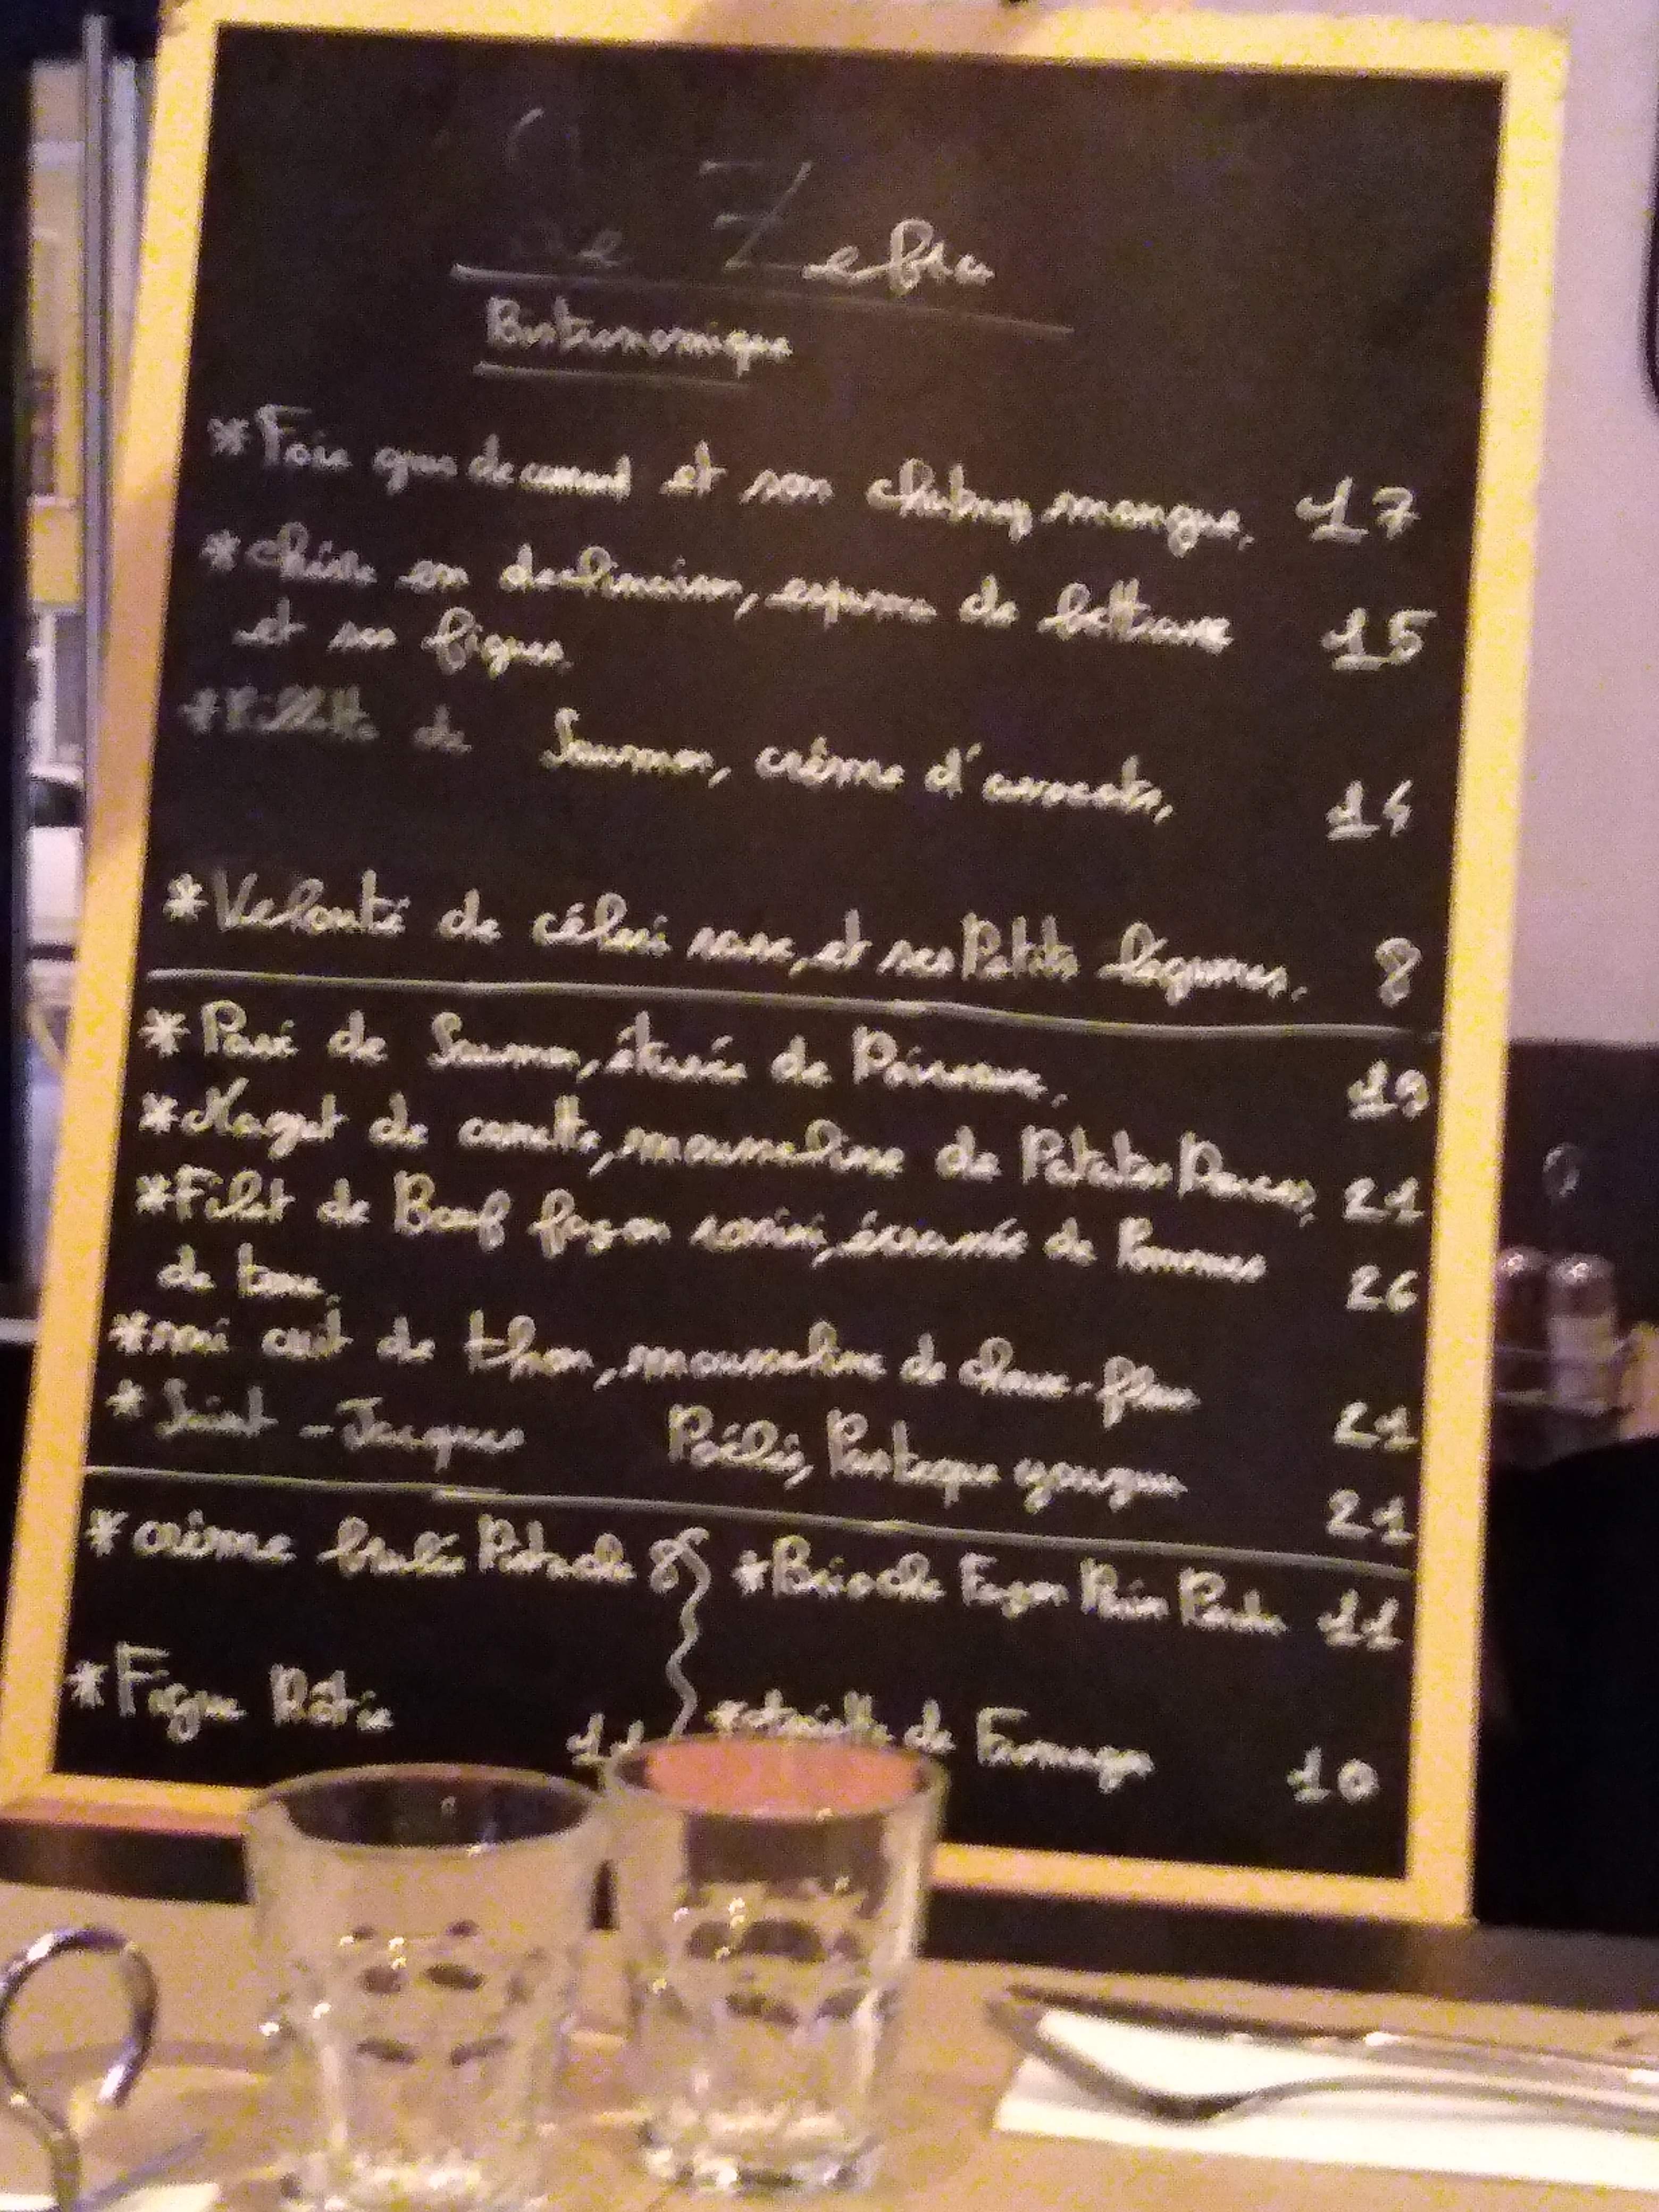 Le Zebra
Bistronomique
*Foie gras de canard et son chutney mangue. 17
*chèvre en declinaison, espuma de betterave 15
et ses figues.
*Rillette de Saumon, crème d'avocats, 14
*Velouté de céleri rave, et ses Petits légumes. 8
*Pavé de Saumon, étuvée de Poireaux. 19
*Magret de canette, mousseline de Patates Douces, 21
*Filet de Boeuf façon rossini, écrasée de Pommes 26
de terre.
*mi cuit de thon, mousseline de choux-fleur 21
*Saint-Jacques Poêlés, Pasteque 21
*crème brulée Pistache 8 *Brioche Façon Pain Perdu 11
*Figue Rôtie 11 *Assiette de Fromage 10